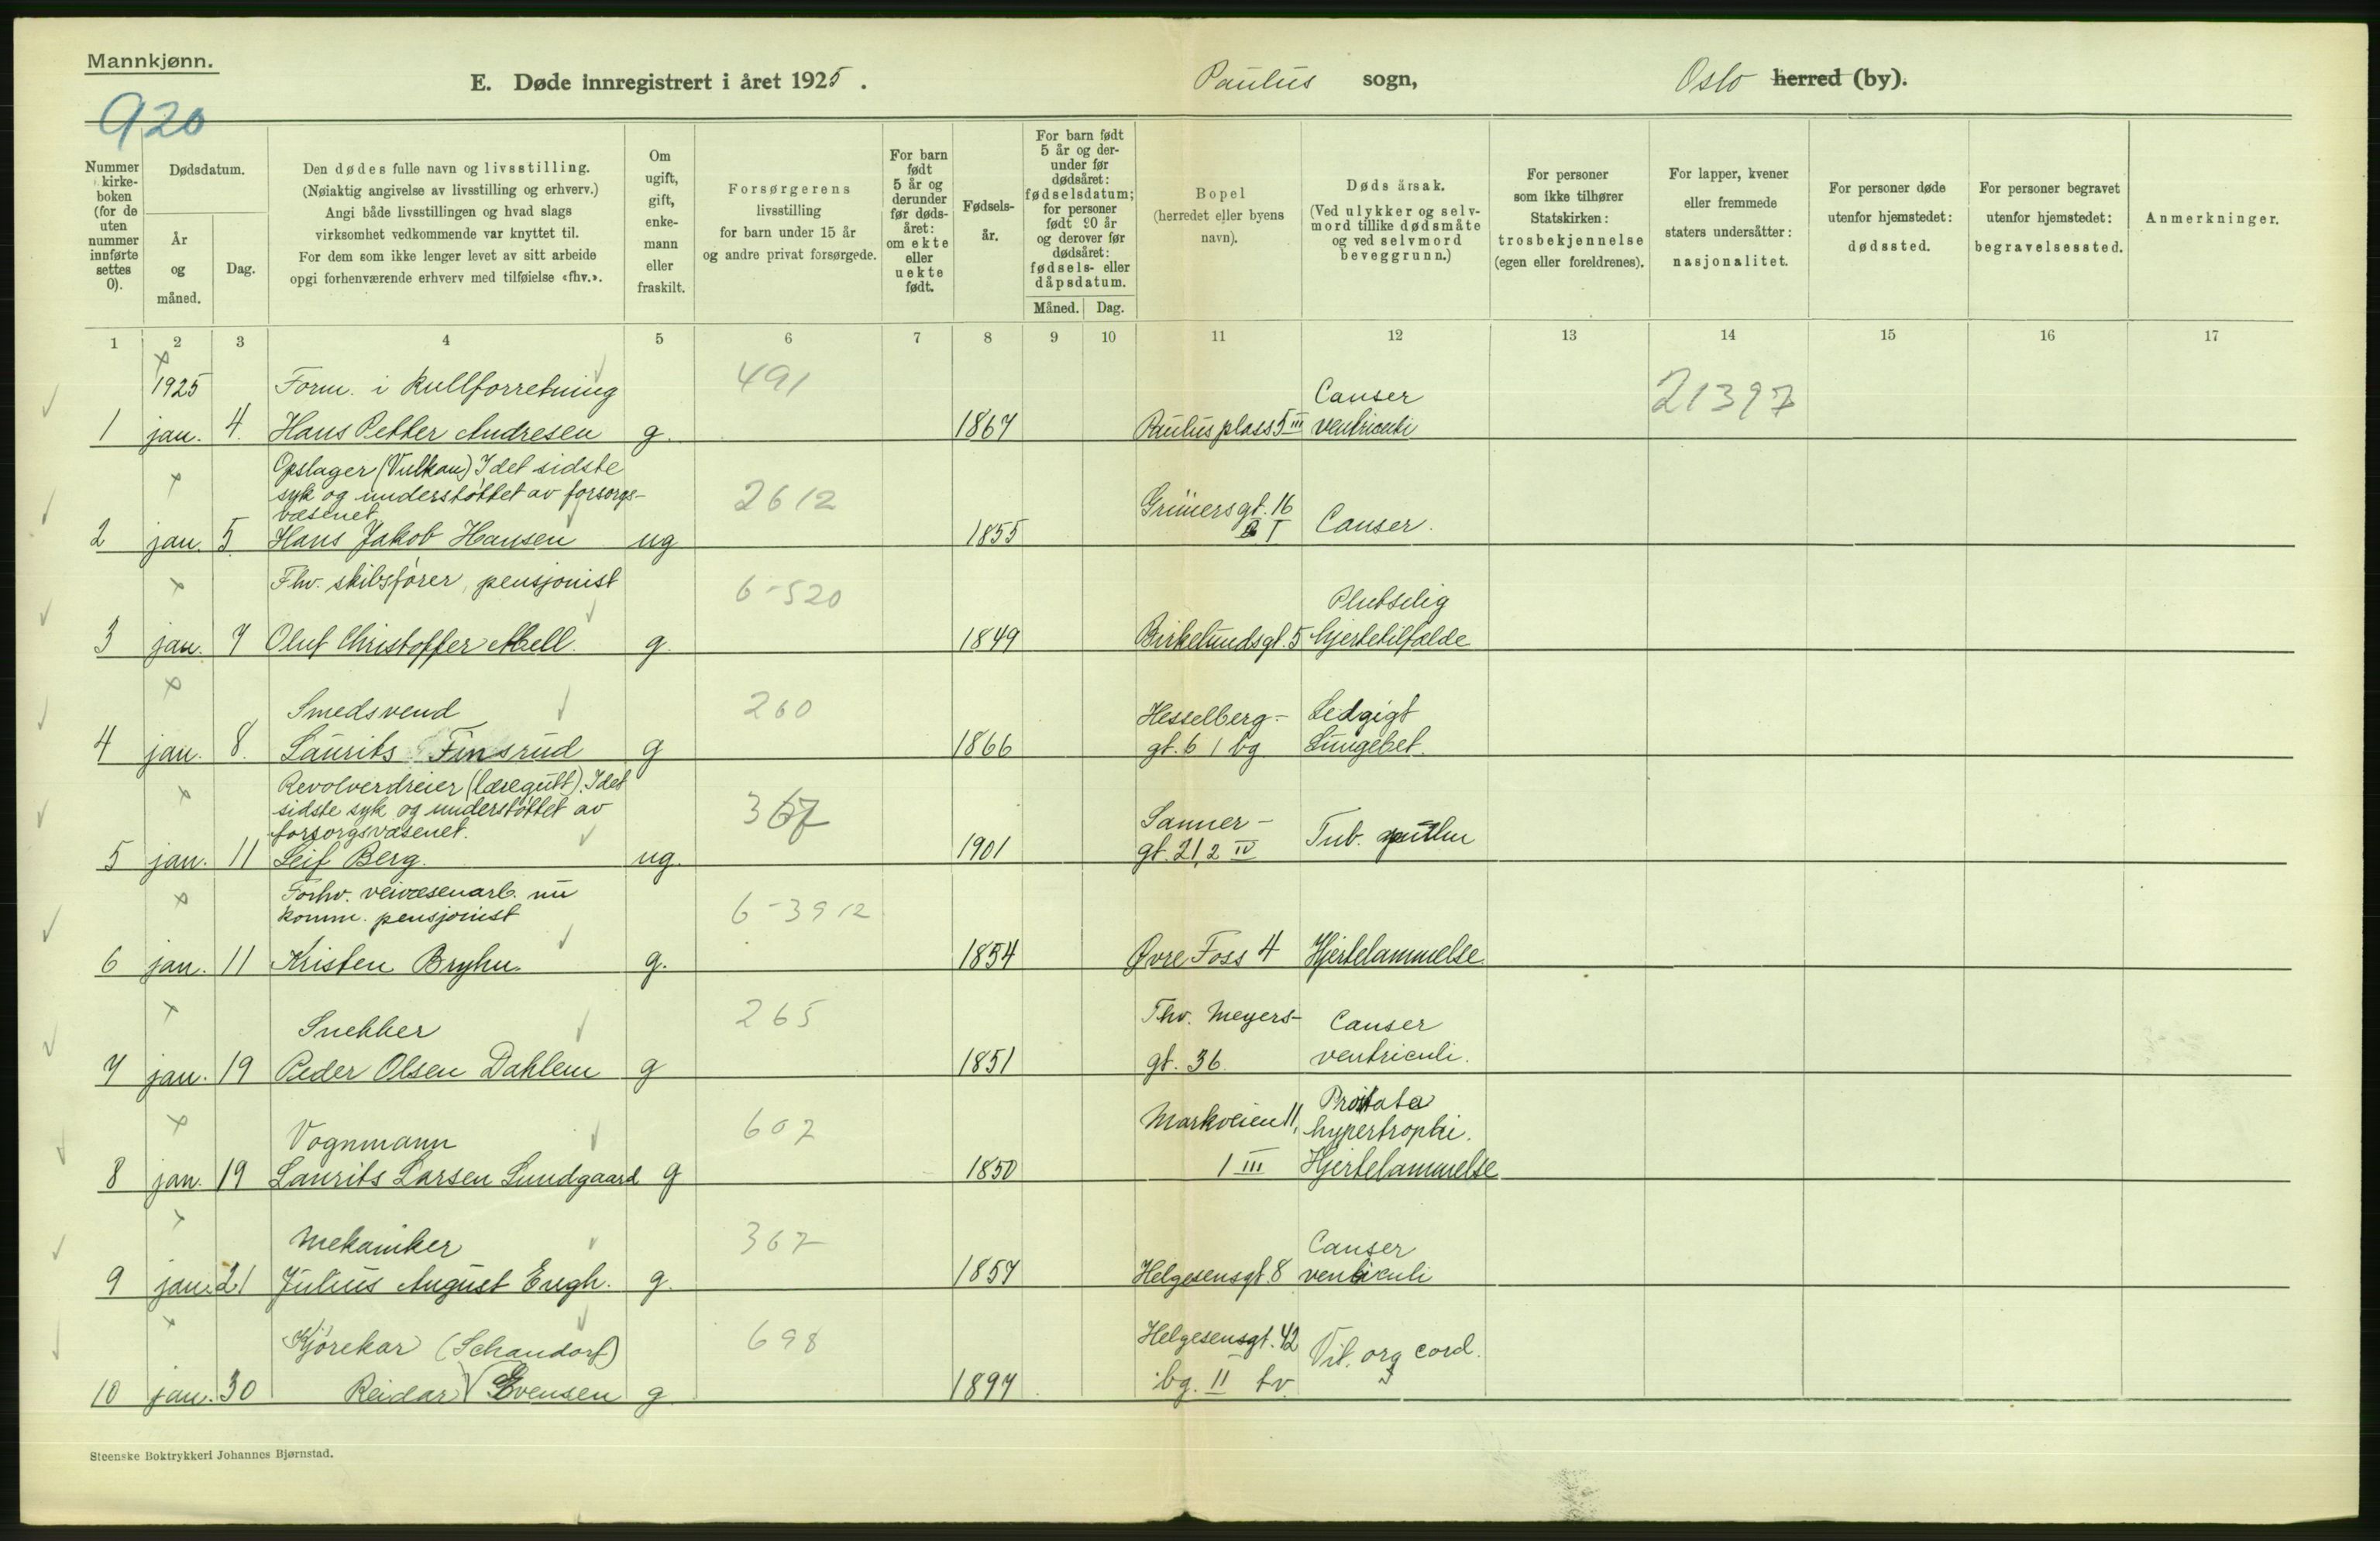 Mannkjønn.
E. Døde innregistrert i året 1925.
Paulus sogn,
Oslo herred (by).
920
Nummer i kirke-
boken
(for de
uten
nummer
innførte
settes
0).
Dødsdatum.
År
og
måned.
Dag.
Den dødes fulle navn og livsstilling.
(Nøiaktig angivelse av livsstilling og erhverv.)
Angi både livsstillingen og hvad slags
virksomhet vedkommende var knyttet til.
For dem som ikke lenger levet av sitt arbeide
opgi forhenværende erhverv med tilføielse «fhv.».
Om
ugift,
gift,
enke-
mann
eller
fraskilt.
Forsørgerens
livsstilling
for barn under 15 år
og andre privat forsørgede.
For barn
født
5 år og
derunder
før døds-
året:
om ekte
eller
uekte
født.
Fødsels-
år.
For barn født
5 år og der-
under før
dødsåret:
fødselsdatum;
for personer
født 90 år
og derover før
dødsåret:
fødsels- eller
dåpsdatum.
Måned. Dag.
Bopel
(herredet eller byens
navn).
Dødsårsak.
(Ved ulykker og selv-
mord tillike dødsmåte
og ved selvmord
beveggrunn.)
For personer
som ikke tilhører
Statskirken:
trosbekjennelse
(egen eller foreldrenes).
For lapper, kvener
eller fremmede
staters undersåtter:
nasjonalitet.
For personer døde
utenfor hjemstedet:
dødssted.
For personer begravet
utenfor hjemstedet:
begravelsessted.
Anmerkninger.
1 2 3 4 5 6 7 8 9 10 11 12 13 14 15 16 17
1925 Form. i kullforretning 491 Canser 21397
1 jan. 4. Hans Petter Andresen g. 1867 Paulus plass 5 III ventriculi
Opslager (Vulkan) I det sidste
syk og understøttet av forsorgs-
væsenet 2612 Grünersgt. 16
2 jan. 5. Hans Jakob Hansen ug 1855 I Canser.
Fhv. skibsfører, pensjonist 6-520 Plutselig
3 jan. 7 Oluf Christoffer Mell. g. 1849 Birkelundsgt. 5 hjertetilfælde
Smedsvend 260 Hesselberg- Ledgigt
4 jan. 8. Laurits Finsrud g 1866 gt. 6 1 bg Lungebet.
Revolverdreier (læregutt). I det
sidste syk og understøttet av
forsorgsvæsenet. 367 Sanner-
5 jan. 11 Leif Berg. ug. 1901 gt. 21, 2 IV Tub. pulm
Forhv. veivæsenarb. nu
komm. pensjonist 6-3912
6 jan. 11 Kristen Bryhn. g. 1854 Øvre Foss 4 Hjertelammelse.
Snekker 265 Thv. Meyers- Canser
7 jan. 19 Peder Olsen Dahlem g 1851 gt. 36. ventriculi.
Vognmann 607 Markveien 11, Prostata
hypertrophi.
8 jan. 19 Laurits Larsen Lundgaard g 1850 1 III Hjertelammelse
Mekaniker 367 Canser
9 jan. 21 Julius August Engh. g. 1857 Helgesensgt. 8 ventriculi
Kjørekar (Schandorf) 698 Helgesensgt. 42 Vit. org cord.
10 jan. 30 Reidar Evensen g 1897 bg. II tv.
Steenske Boktrykkeri Johannes Bjørnstad.